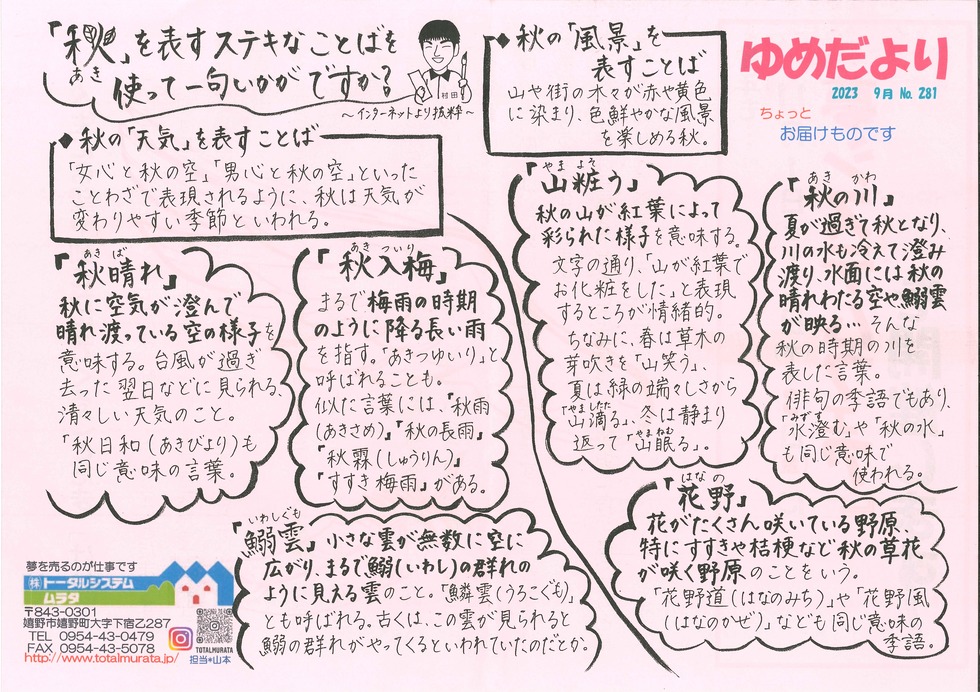 「秋」を表すステキなことばを
あき
使って一句いかがですか?
村田
～インターネットより抜粋～
ゆめだより
2023 9月 No. 281
ちょっと
お届けものです
◆秋の「天気」を表すことば
「女心と秋の空」「男心と秋の空」といった
ことわざで表現されるように、秋は天気が
変わりやすい季節といわれる。
あき ば
『秋晴れ』
秋に空気が澄んで
晴れ渡っている空の様子を
意味する。台風が過ぎ
去った翌日などに見られる、
清々しい天気のこと。
「秋日和(あきびより)も
同じ意味の言葉。
あき ついり
『秋入梅』
まるで梅雨の時期
のように降る長い雨
を指す。「あきつゆいり」と
呼ばれることも。
似た言葉には、「秋雨
(あきさめ)」「秋の長雨」
「秋霖(しゅうりん)」
「すすき梅雨」がある。
いわしぐも
『鰯雲』小さな雲が無数に空に
広がり、まるで鰯(いわし)の群れの
ように見える雲のこと。「鱗雲(うろこぐも)」
とも呼ばれる。古くは、この雲が見られると
鰯の群れがやってくるといわれていたのだとか。
◆秋の「風景」を
表すことば
山や街の木々が赤や黄色
に染まり、色鮮やかな風景
を楽しめる秋。
やま よそ
『山粧う』
秋の山が紅葉によって
彩られた様子を意味する。
文字の通り、「山が紅葉で
お化粧をした」と表現
するところが情緒的。
ちなみに、春は草木の
芽吹きを「山笑う」、
夏は緑の端々しさから
やましたた
「山滴る」、冬は静まり
やまねむ
返って「山眠る」。
あき かわ
『秋の川』
夏が過ぎて秋となり、
川の水も冷えて澄み
渡り、水面には秋の
晴れわたる空や鰯雲
が映る… そんな
秋の時期の川を
表した言葉。
俳句の季語でもあり、
みずす
「水澄む」や「秋の水」
も同じ意味で
使われる。
はな の
『花野』
花がたくさん咲いている野原、
特にすすきや桔梗など秋の草花
が咲く野原のことをいう。
「花野道(はなのみち)」や「花野風
(はなのかぜ)」なども同じ意味の
季語。
夢を売るのが仕事です
㈱トータルシステム
ムラタ
〒843-0301
嬉野市嬉野町大字下宿乙287
TEL 0954-43-0479
FAX 0954-43-5078
http://www.totalmurata.jp/
TOTALMURATA
担当*山本